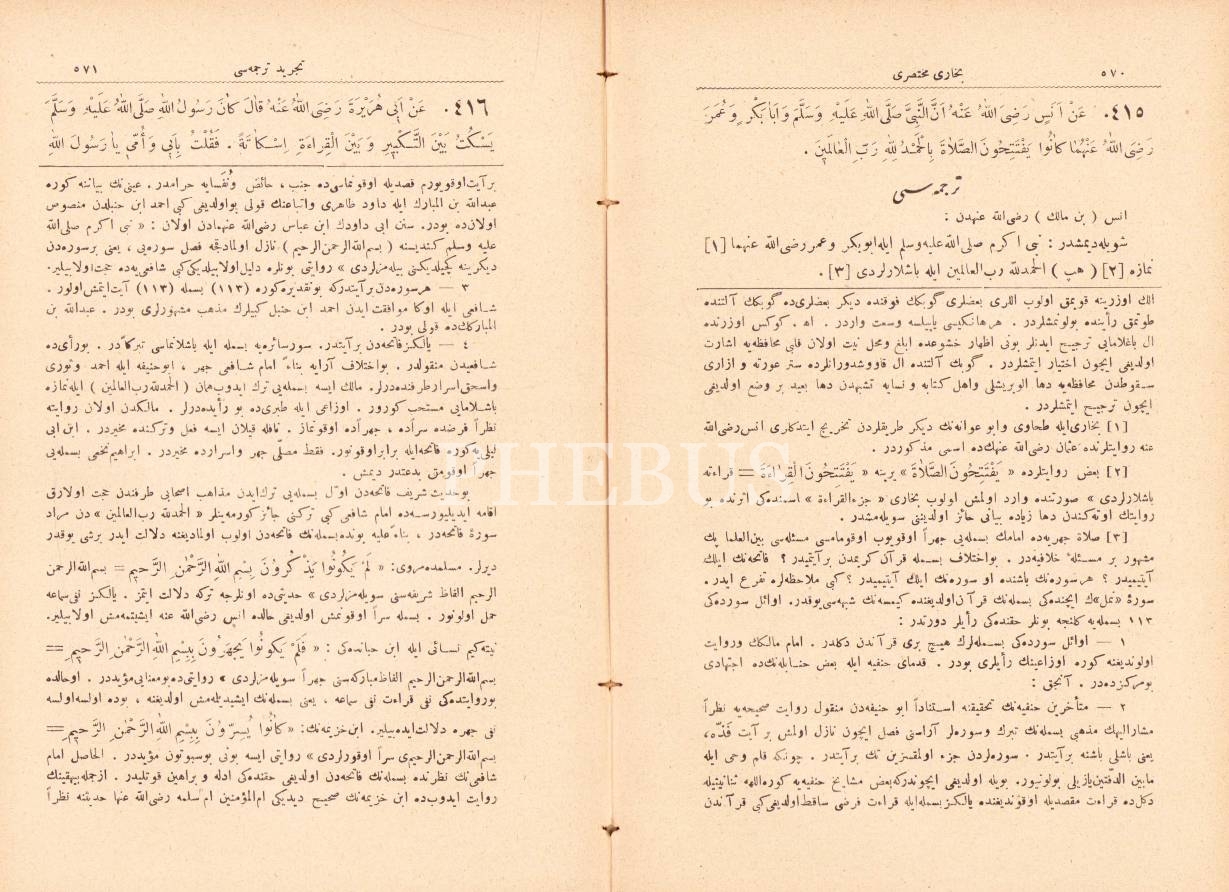 ٥٧٠ بخاری مختصری
٤١٥. عَنْ اَنَسٍ رَضِیَ اللهُ عَنْهُ اَنَّ النَّبِیَّ صَلَّى اللهُ عَلَیْهِ وَسَلَّمَ وَاَبَابَكْرٍ وَعُمَرَ
رَضِیَ اللهُ عَنْهُمَا كَانُوا یَفْتَتِحُونَ الصَّلَاةَ بِالْحَمْدُ لِلهِ رَبِّ الْعَالَمِینَ .
ترجمه‌سی
انس ( بن مالك ) رضی‌الله عنهدن :
شویله‌دیمشدر : نبی اكرم صلی‌الله‌علیه‌وسلم ایله‌ابوبكر وعمر رضی‌الله عنهما [١]
نمازه [٢] ( هپ ) الحمدلله رب‌العالمین ایله باشلارلردی [٣] .
الك اوزرینه قویمق اولوب اللری بعضلری گوبكك فوقنده دیكر بعضلری‌ده گوبكك آلتنده
طوتمق رأینده بولونمشلردر . هرهانكیسی یاپیلسه وسعت واردر . اه . كوكس اوزرنده
ال باغلامایی ترجیح ایدنلر بونی اظهار خشوعده ابلغ ومحل نیت اولان قلبی محافظه‌یه اشارت
اولدیغی ایچون اختیار ایتمشلردر . گوبك آلتنده ال قاووشدورانلرده ستر عورته و ازاری
سقوطدن محافظه‌یه دها الویریشلی واهل كتابه و نسایه تشبهدن دها بعید بر وضع اولدیغی
ایچون ترجیح ایتمشلردر .
[١] بخاری‌ایله طحاوی وابو عوانه‌نك دیكر طریقلردن تخریج ایتدكاری انس‌رضی‌الله
عنه روایتلرنده عثمان رضی‌الله عنهك‌ده اسمی مذكوردر .
[٢] بعض روایتلرده « یَفْتَتِحُونَ الصَّلَاةَ » یرینه « یَفْتَتِحُونَ الْقِرَاءَةَ = قراءته
باشلارلردی » صورتنده وارد اولمش اولوب بخاری « جزءالقراءة » اسمنده‌كی اثرنده بو
روایتك اوته‌كندن دها زیاده بیانی حائز اولدیغنی سویله‌مشدر .
[٣] صلاة جهریه‌ده امامك بسمله‌یی جهراً اوقویوب اوقومامسی مسئله‌سی بین‌العلما پك
مشهور بر مسئلهٔ خلافیه‌در . بواختلاف بسمله قرآن كریمدن برآیتمیدر ؟ فاتحه‌نك ایلك
آیتیمیدر ؟ هرسوره‌نك باشنده او سوره‌نك ایلك آیتیمیدر ؟ كبی ملاحظه‌لره تفرع ایدر .
سورهٔ «نمل»ك ایچنده‌كی بسمله‌نك قرآن‌اولدیغنده كیمسه‌نك شبهه‌سی‌یوقدر . اوائل سورده‌كی
١١٣ بسمله‌یه كلنجه بونلر حقنده‌كی رأیلر دورتدر :
١ — اوائل سورده‌كی بسمله‌لرك هیچ بری قرآندن دكلدر . امام مالكك وروایت
اولوندیغنه كوره اوزاعینك رأیلری بودر . قدمای حنفیه ایله بعض حنابله‌نك‌ده اجتهادی
بومركزده‌در . آنجق :
٢ — متأخرین حنفیه‌نك تحقیقنه استناداً ابو حنیفه‌دن منقول روایت صحیحه‌یه نظراً
مشارالیهك مذهبی بسمله‌نك تبرك وسوره‌لر آراسنی فصل ایچون نازل اولمش بر آیت فَذّه،
یعنی باشلی باشنه برآیتدر . سوره‌لردن جزء اولمقسزین تك برآیتدر . چونكه قلم وحی ایله
مابین الدفتین‌یازیلی بولونیور. بویله اولدیغی ایچوندركه‌بعض مشایخ حنفیه‌یه كوره‌اللهه ثنانیتیله
دكل‌ده قراءت مقصدیله اوقوندیغنده یالكزبسمله‌ایله قراءت فرضی ساقط‌اولدیغی‌كبی قرآندن
تجرید ترجمه‌سی ٥٧١
٤١٦. عَنْ اَبِی هُرَیْرَةَ رَضِیَ اللهُ عَنْهُ قَالَ كَانَ رَسُولُ اللهِ صَلَّى اللهُ عَلَیْهِ وَسَلَّمَ
یَسْكُتُ بَیْنَ التَّكْبِیرِ وَبَیْنَ الْقِرَاءَةِ اِسْكَاتَةً . فَقُلْتُ بِاَبِی وَاُمِّی یَا رَسُولَ اللهِ
برآیت‌اوقویورم قصدیله اوقونماسی‌ده جنب ، حائض ونُفَسایه حرامدر . عینی‌نك بیاننه كوره
عبدالله بن المبارك ایله داود ظاهری واتباعنك قولی بواولدیغی كبی احمد ابن حنبلدن منصوص
اولان‌ده بودر. سنن ابی داودك ابن عباس رضی‌الله عنهمادن اولان : « نبی اكرم صلی‌الله
علیه وسلم كندیسنه ( بسم‌الله‌الرحمن‌الرحیم ) نازل اولمادقجه فصل سوره‌یی ، یعنی برسوره‌دن
دیكرینه كچیلدیكنی بیله‌مزلردی » روایتی بونلره دلیل‌اولابیلدیكی‌كبی شافعی‌یه‌ده حجت‌اولابیلیر.
٣ — هرسوره‌دن برآیتدركه بوتقدیره‌كوره (١١٣) بسمله (١١٣) آیت‌ایتمش‌اولور .
شافعی ایله اوكا موافقت ایدن احمد ابن حنبل كبیلرك مذهب مشهورلری بودر . عبدالله بن
المباركك‌ده قولی بودر .
٤ — یالكزفاتحه‌دن برآیتدر. سورسائره‌یه بسمله ایله باشلانماسی تبركاًدر . بورأی‌ده
شافعیدن منقولدر . بواختلاف آرایه بناءً امام شافعی جهر ، ابوحنیفه ایله احمد وثوری
واسحق‌اسرارطرفنده‌درلر. مالك ایسه بسمله‌یی ترك ایدوب‌همان ( الحمدلله‌رب‌العالمین ) ایله‌نمازه
باشلامایی مستحب كورور . اوزاعی ایله طبری‌ده بو رأیده‌درلر . مالكدن اولان روایته
نظراً فرضده سراًده ، جهراًده اوقونماز . نافله قیلان ایسه فعل وتركنده مخیردر . ابن ابی
لیلی‌یه‌كوره فاتحه‌ایله برابراوقونور. فقط مصلّی جهر واسرارده مخیردر . ابراهیم‌نخعی بسمله‌یی
جهراً اوقومق بدعتدر دیمش .
بوحدیث شریف فاتحه‌دن اوّل بسمله‌یی ترك‌ایدن مذاهب اصحابی طرفندن حجت اولارق
اقامه ایدیلیورسه‌ده امام شافعی كبی تركنی جائز كورمه‌ینلر « الحمدلله رب‌العالمین » دن مراد
سورهٔ فاتحه‌در ، بناءً علیه بونده‌بسمله‌نك فاتحه‌دن اولوب اولمادیغنه دلالت ایدر برشی یوقدر
دیرلر. مسلمده‌مروی: « لَمْ یَكُونُوا یَذْكُرُونَ بِسْمِ اللهِ الرَّحْمٰنِ الرَّحِیمِ = بسم‌الله‌الرحمن
الرحیم الفاظ شریفه‌سنی سویله‌مزلردی » حدیثی‌ده اونلرجه تركه دلالت ایتمز . یالكز نفی‌سماعه
حمل اولونور . بسمله سراً اوقونمش اولدیغی حالده انس رضی‌الله عنه ایشیتمه‌مش اولابیلیر.
نیته‌كیم نسائی ایله ابن حبانده‌كی : « فَلَمْ یَكُونُوا یَجْهَرُونَ بِبِسْمِ اللهِ الرَّحْمٰنِ الرَّحِیمِ =
بسم‌الله‌الرحمن‌الرحیم الفاظ‌مباركه‌سنی جهراً سویله‌مزلردی » روایتی‌ده بومعنایی‌مؤیددر . اوحالده
بوروایتده‌كی نفی قراءت نفی سماعه ، یعنی بسمله‌نك ایشیدیلمه‌مش اولدیغنه ، بوده اولسه‌اولسه
نفی جهره دلالت‌ایده‌بیلیر. ابن‌خزیمه‌نك: « كَانُوا یُسِرُّونَ بِبِسْمِ اللهِ الرَّحْمٰنِ الرَّحِیمِ =
بسم‌الله‌الرحمن‌الرحیمی سراً اوقورلردی » روایتی ایسه بونی بوسبوتون مؤیددر . الحاصل امام
شافعی‌نك نظرنده بسمله‌نك فاتحه‌دن اولدیغی حقنده‌كی ادله و براهین قوتلیدر . ازجمله‌بیهقینك
روایت ایدوب‌ده ابن خزیمه‌نك صحیح دیدیكی ام‌المؤمنین ام‌سلمه رضی‌الله عنها حدیثنه نظراً
PHEBUS